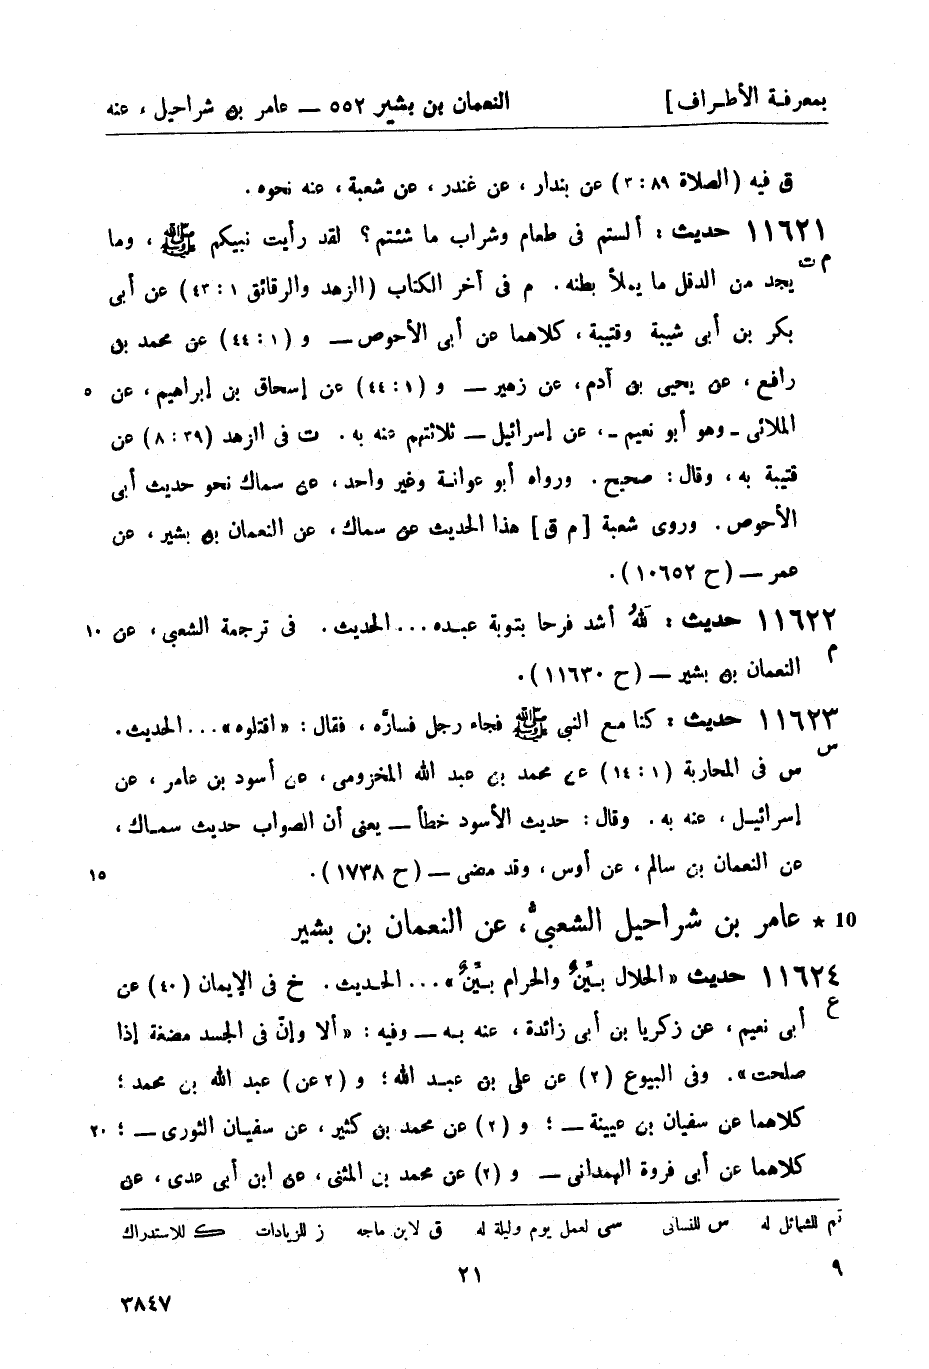 بمعرفة الأطراف] النعمان بن بشير ٥٥٢ — عامر بن شراحيل ، عنه
ق فيه (الصلاة ٨٩ : ٣) عن بندار ، عن غندر ، عن شعبة ، عنه نحوه .
١١٦٢١ حديث : ألستم فى طعام وشراب ما شئتم؟ لقد رأيت نبيكم ﷺ ، وما
م ت
يجد من الدقل ما يملأ بطنه . م فى آخر الكتاب (الزهد والرقائق ١ : ٤٣) عن أبى
بكر بن أبى شيبة وقتيبة ، كلاهما عن أبى الأحوص — و (١ : ٤٤) عن محمد بن
رافع ، عن يحيى بن آدم ، عن زهير — و (١ : ٤٤) عن إسحاق بن إبراهيم ، عن ٥
الملائى ـ وهو أبو نعيم ـ ، عن إسرائيل — ثلاثتهم عنه به . ت فى الزهد (٣٩ : ٨) عن
قتيبة به ، وقال : صحيح . ورواه أبو عوانة وغير واحد ، عن سماك نحو حديث أبى
الأحوص . وروى شعبة [م ق] هذا الحديث عن سماك ، عن النعمان بن بشير ، عن
عمر — (ح ١٠٦٥٢) .
١١٦٢٢ حديث : للهُ أشد فرحا بتوبة عبده ... الحديث . فى ترجمة الشعبي ، عن ١٠
م
النعمان بن بشير — (ح ١١٦٣٠) .
١١٦٢٣ حديث : كنا مع النبي ﷺ فجاء رجل فسارَّه ، فقال : «اقتلوه» ... الحديث .
س
س فى المحاربة (١ : ١٤) عن محمد بن عبد الله المخزومى ، عن أسود بن عامر ، عن
إسرائيل ، عنه به . وقال : حديث الأسود خطأ — يعنى أن الصواب حديث سماك ،
عن النعمان بن سالم ، عن أوس ، وقد مضى — (ح ١٧٣٨) . ١٥
10 * عامر بن شراحيل الشعبىُّ ، عن النعمان بن بشير
١١٦٢٤ حديث «الحلال بيِّنٌ والحرام بيِّنٌ» ... الحديث . خ فى الإيمان (٤٠) عن
ع
أبى نعيم ، عن زكريا بن أبى زائدة ، عنه به — وفيه : «ألا وإنّ فى الجسد مضغة إذا
صلحت» . وفى البيوع (٢) عن على بن عبد الله ؛ و (٢عن) عبد الله بن محمد ؛
كلاهما عن سفيان بن عيينة — ؛ و (٢) عن محمد بن كثير ، عن سفيان الثورى — ؛ ٢٠
كلاهما عن أبى فروة الهمدانى — و (٢) عن محمد بن المثنى ، عن ابن أبى عدى ، عن
تم للشمائل له س للنسائى سى لعمل يوم وليلة له ق لابن ماجه ز للزيادات ك للاستدراك
٩ ٢١
٣٨٤٧